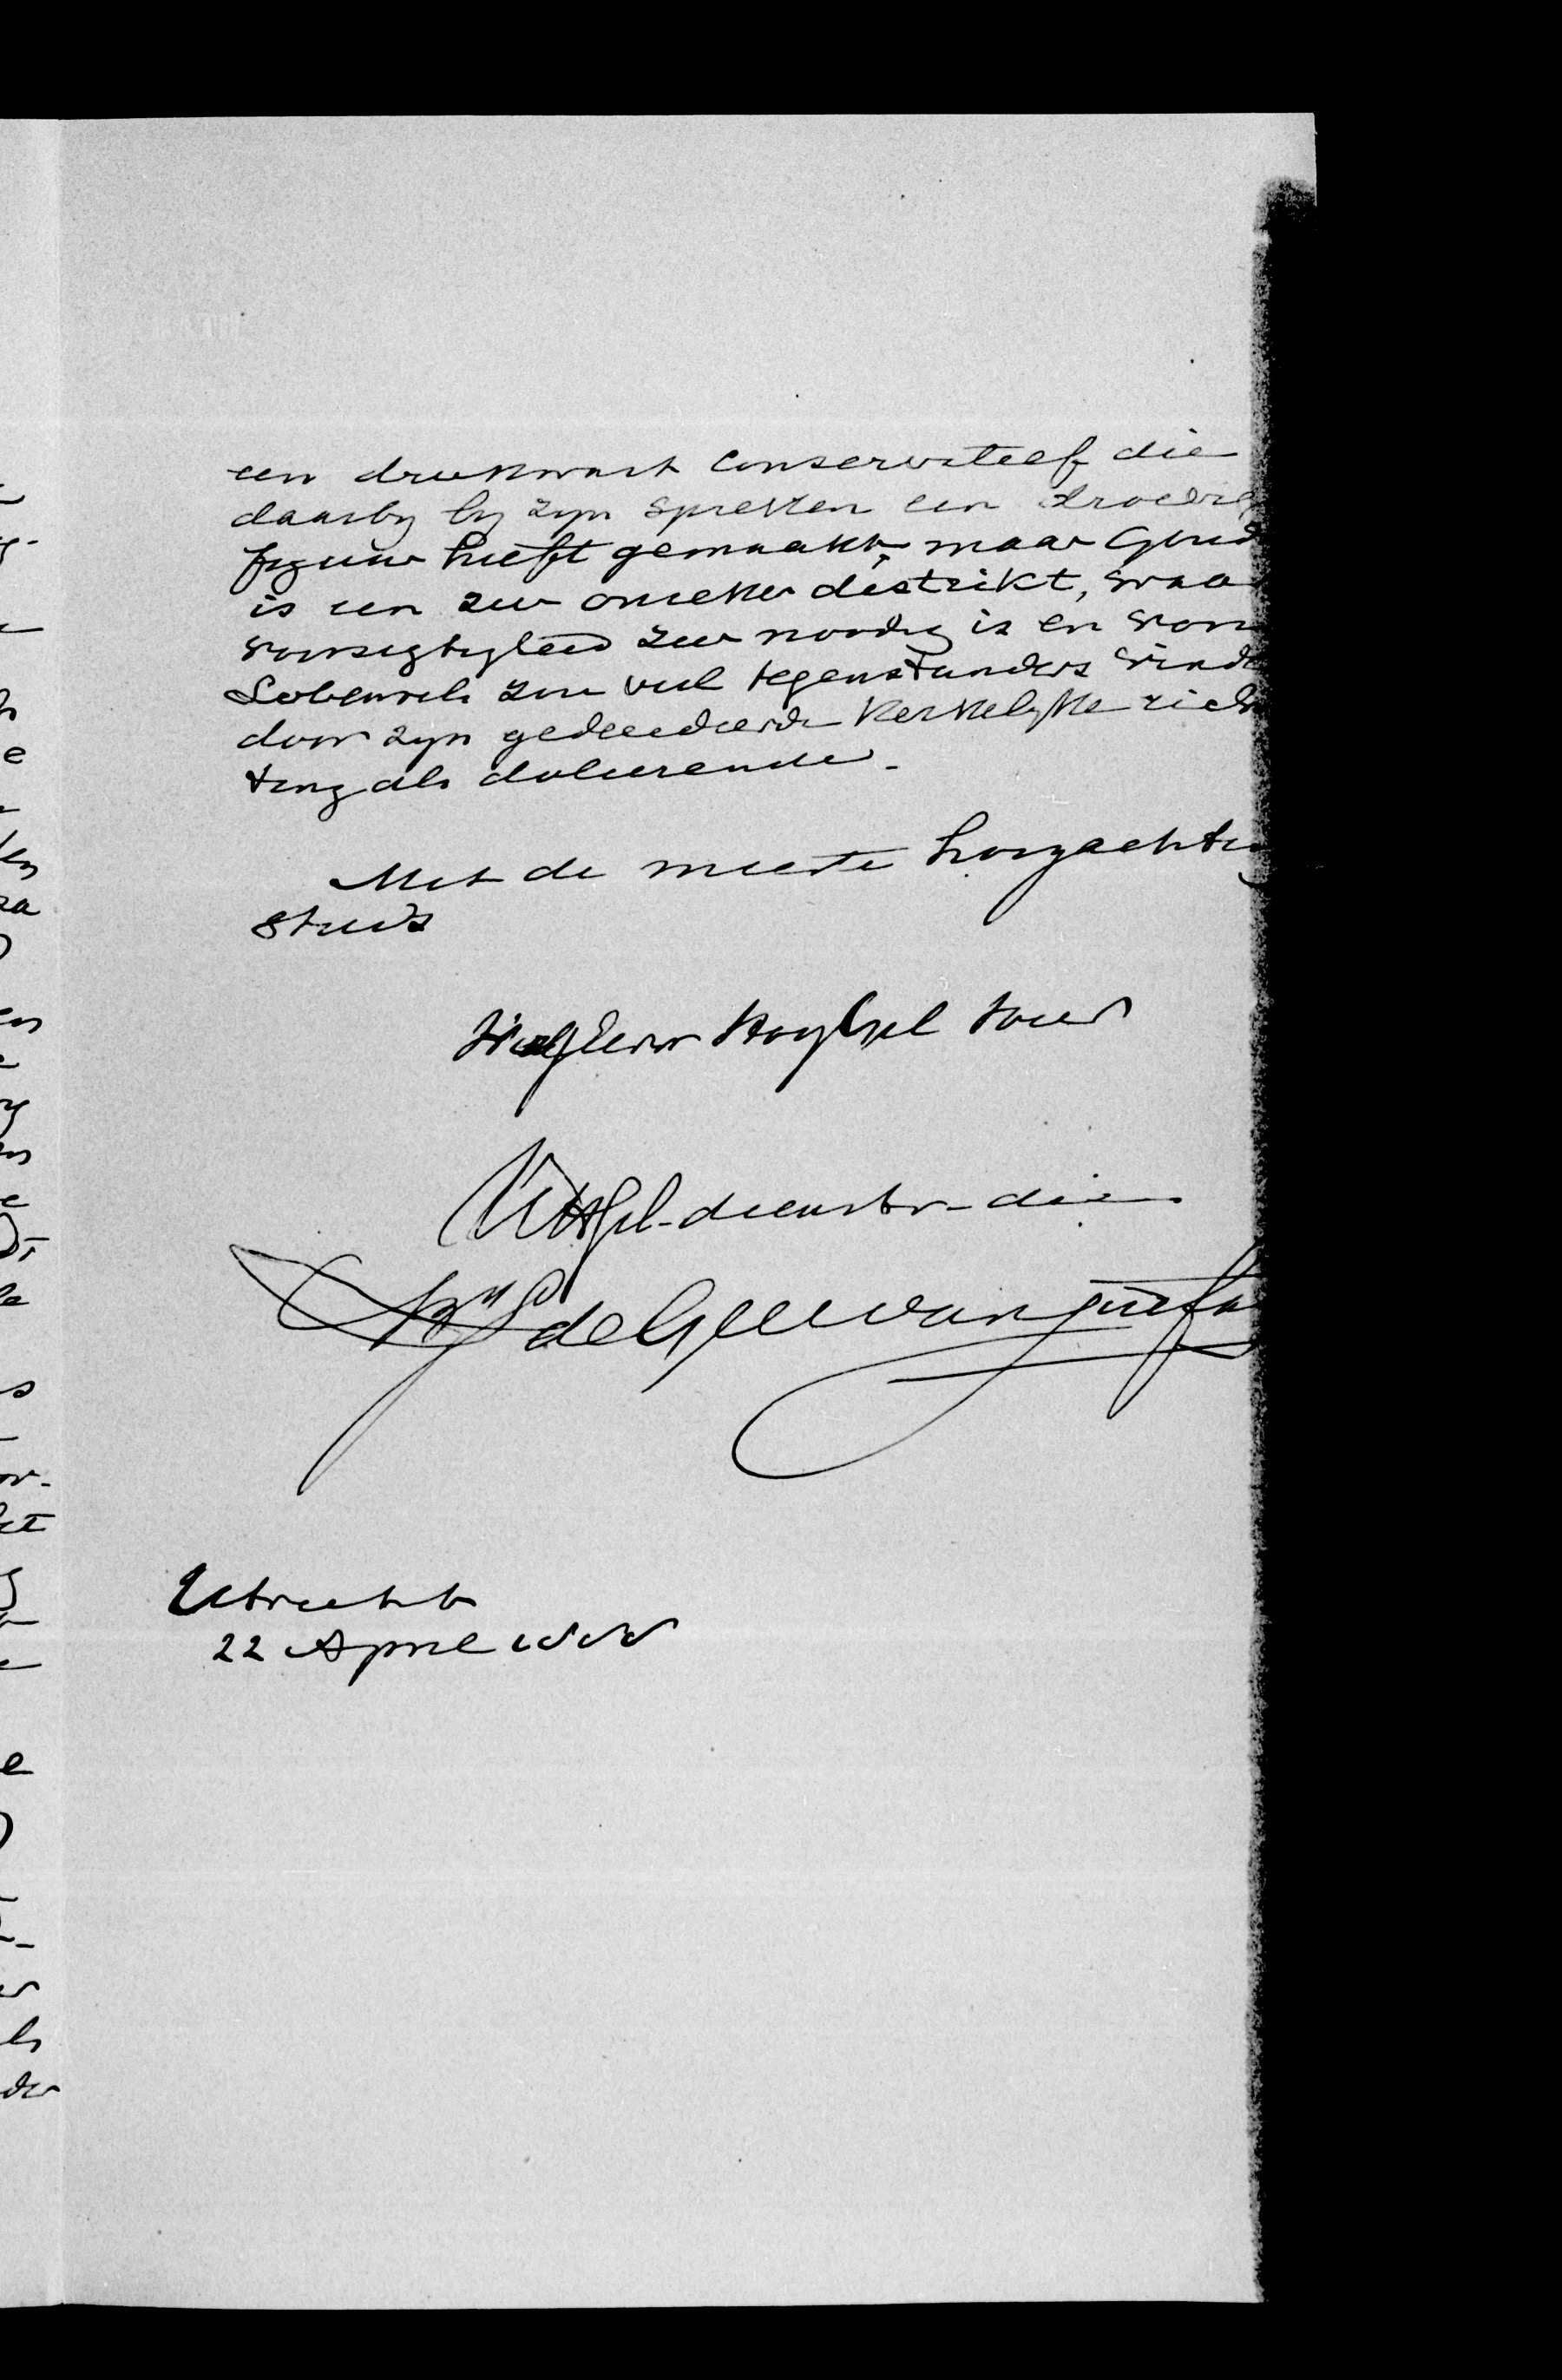 een driekwart conservatief die
daarby by zyn spreken een droevig
figuur heeft gemaakt, maar Goud
is een zeer onzeker distrikt, waa
voorzigtigheid zeer noodig is en voor
Lobman zou veel tegenstanders vinde
door zyn gedecideerde Kerkelyke rich
ting als doleerende.
Met de meeste hoogachting
steeds
Hoogl
WHgel. dienstv. die
de Geer van Jutfa
Utrecht
22 April 1888